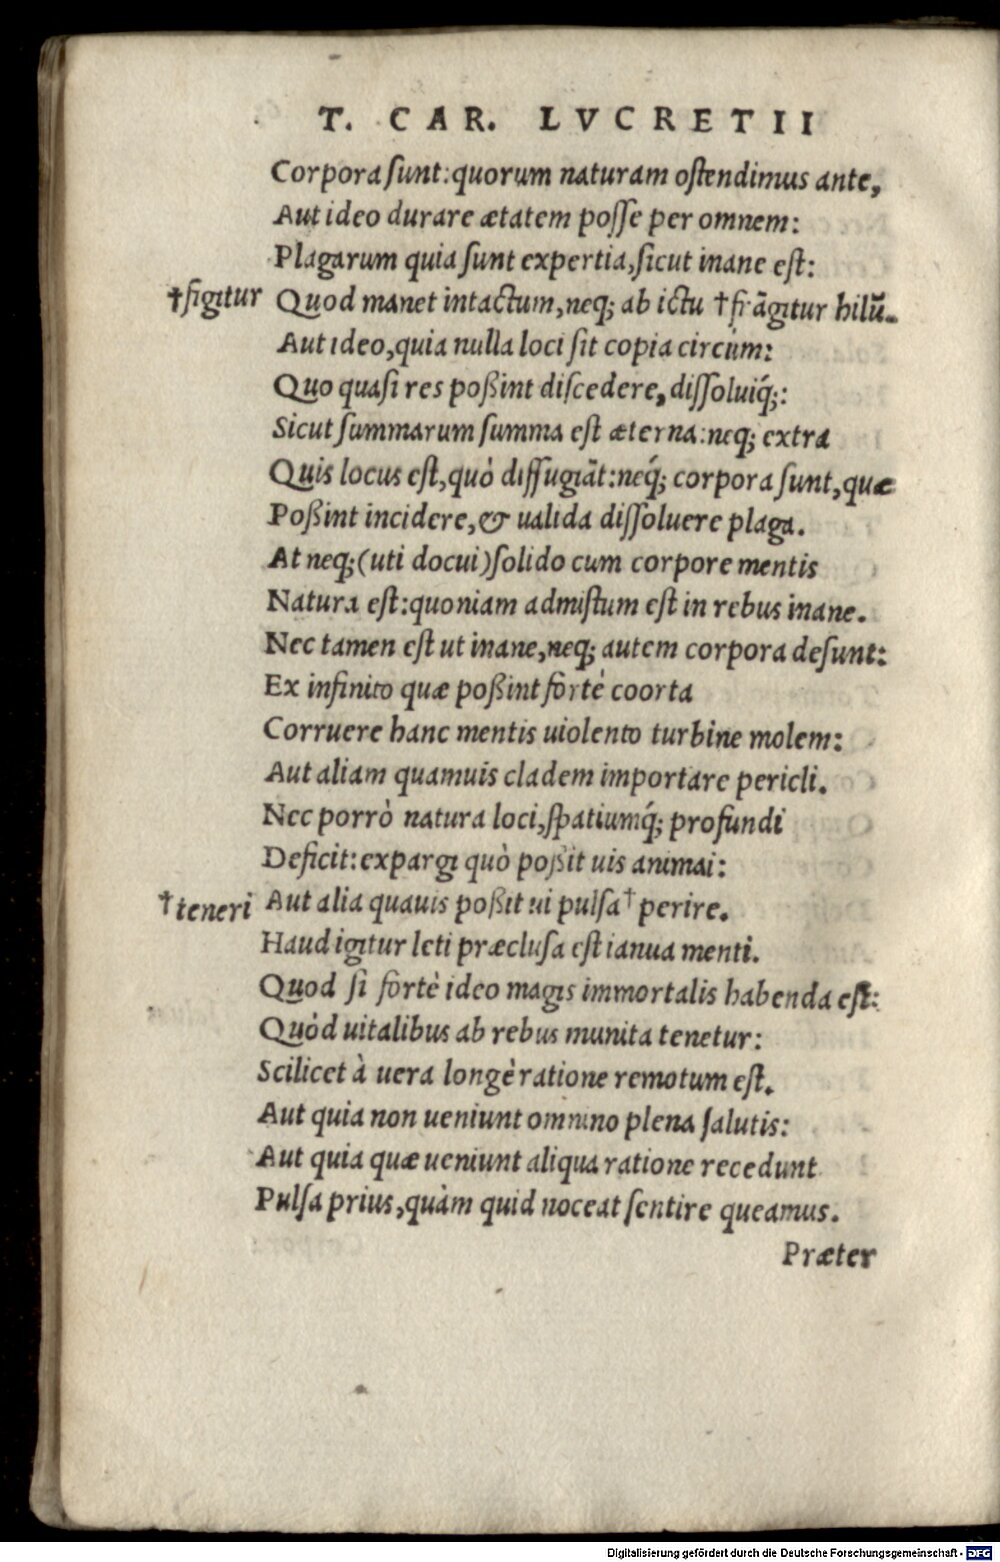 T. CAR. LVCRETII
Corpora ſunt: quorum naturam oſtendimus ante,
Aut ideo durare ætatem poſſe per omnem:
Plagarum quia ſunt expertia, ſicut inane eſt:
†figitur Quod manet intactum, neq; ab ictu †frāgitur hilū.
Aut ideo, quia nulla loci ſit copia circùm:
Quo quaſi res poßint diſcedere, diſſoluiq́;:
Sicut ſummarum ſumma eſt æterna: neq; extra
Quis locus eſt, quò diffugiāt: neq́; corpora ſunt, quæ
Poßint incidere, & ualida diſſoluere plaga.
At neq; (uti docui) ſolido cum corpore mentis
Natura eſt: quoniam admiſtum eſt in rebus inane.
Nec tamen eſt ut inane, neq; autem corpora deſunt:
Ex infinito quæ poßint fortè coorta
Corruere hanc mentis uiolento turbine molem:
Aut aliam quamuis cladem importare pericli.
Nec porrò natura loci, ſpatiumq́; profundi
Deficit: expargi quò poßit uis animai:
†teneri Aut alia quauis poßit ui pulſa †perire.
Haud igitur leti præcluſa eſt ianua menti.
Quod ſi fortè ideo magis immortalis habenda eſt:
Quòd uitalibus ab rebus munita tenetur:
Scilicet à uera longè ratione remotum eſt.
Aut quia non ueniunt omnino plena ſalutis:
Aut quia quæ ueniunt aliqua ratione recedunt
Pulſa prius, quàm quid noceat ſentire queamus.
Præter
Digitalisierung gefördert durch die Deutsche Forschungsgemeinschaft - DFG